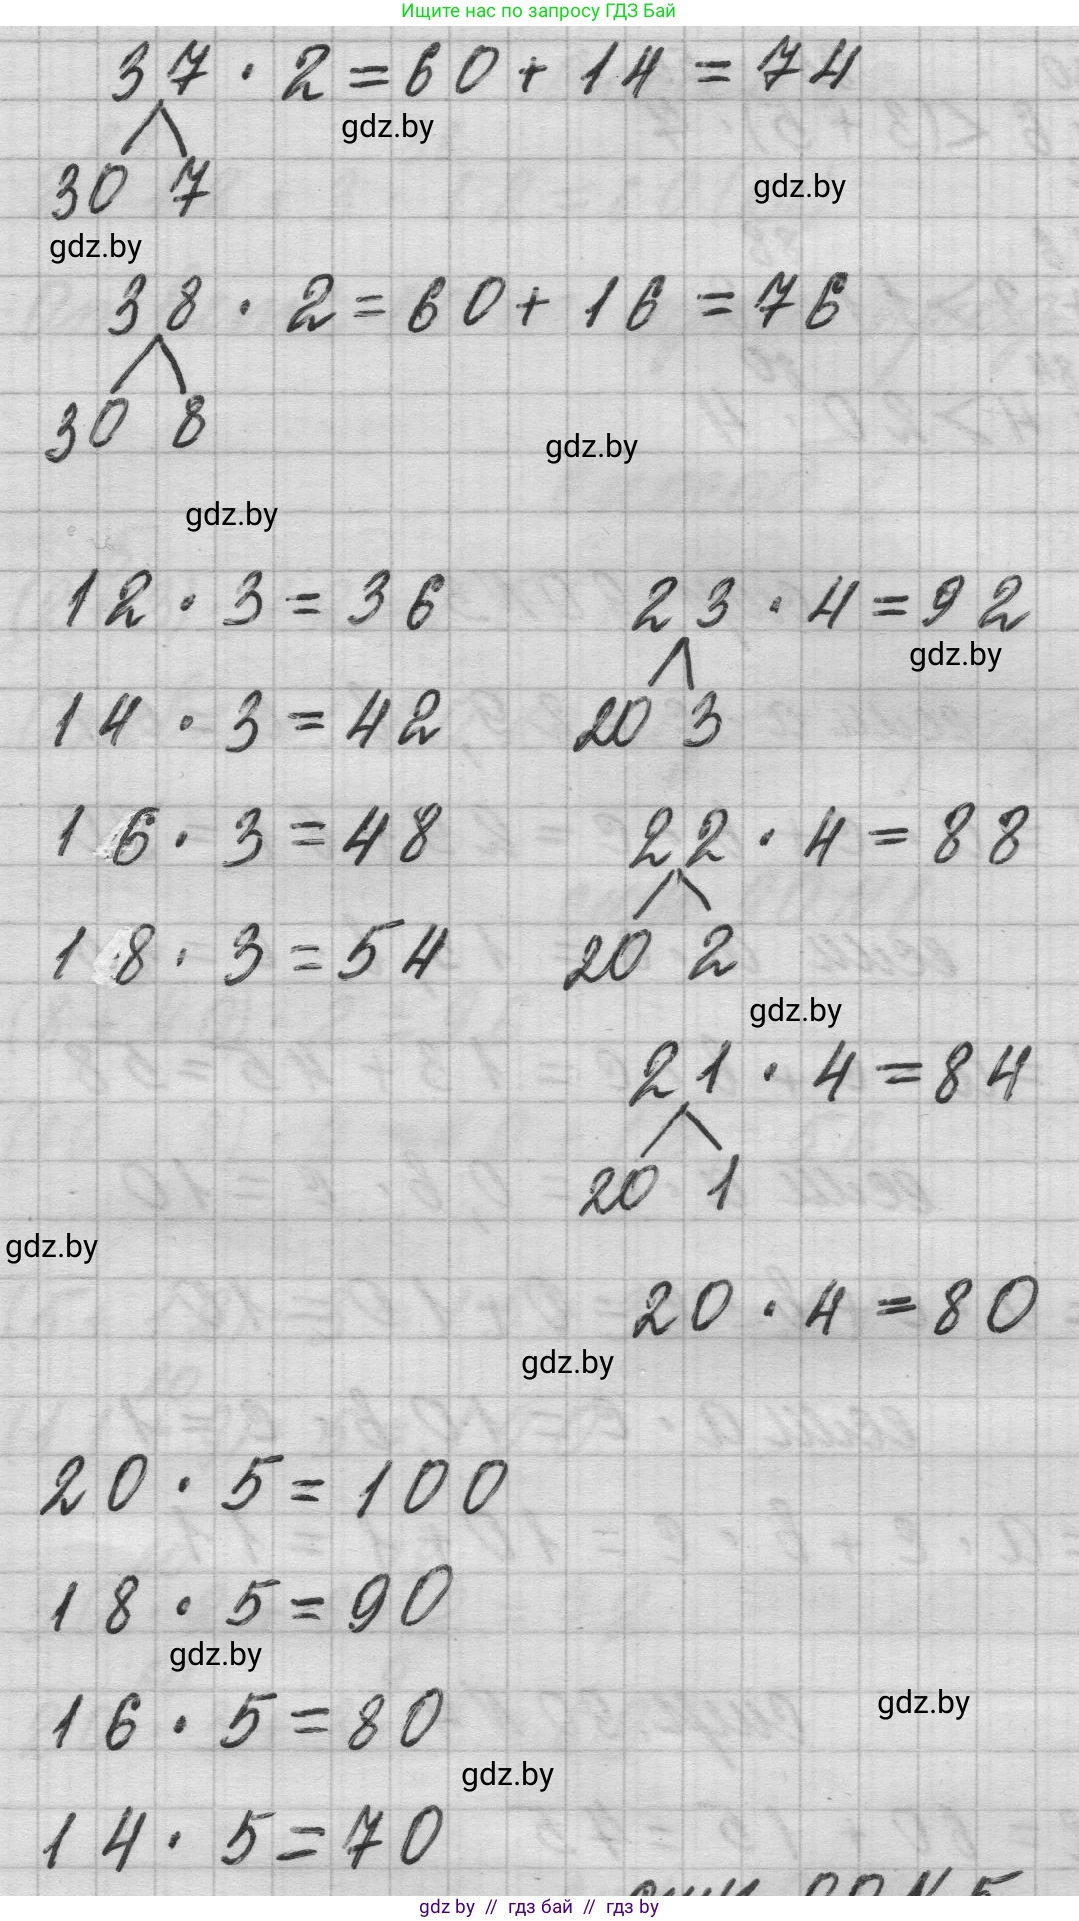 Ищите нас по запросу ГДЗ Бай
37 · 2 = 60 + 14 = 74
gdz.by
30 7
gdz.by
gdz.by
38 · 2 = 60 + 16 = 76
30 8
gdz.by
gdz.by
12 · 3 = 36
23 · 4 = 92
gdz.by
14 · 3 = 42
20 3
16 · 3 = 48
22 · 4 = 88
18 · 3 = 54
20 2
gdz.by
21 · 4 = 84
20 1
gdz.by
20 · 4 = 80
gdz.by
20 · 5 = 100
18 · 5 = 90
gdz.by
gdz.by
16 · 5 = 80
gdz.by
14 · 5 = 70
gdz by // гдз бай // гдз by